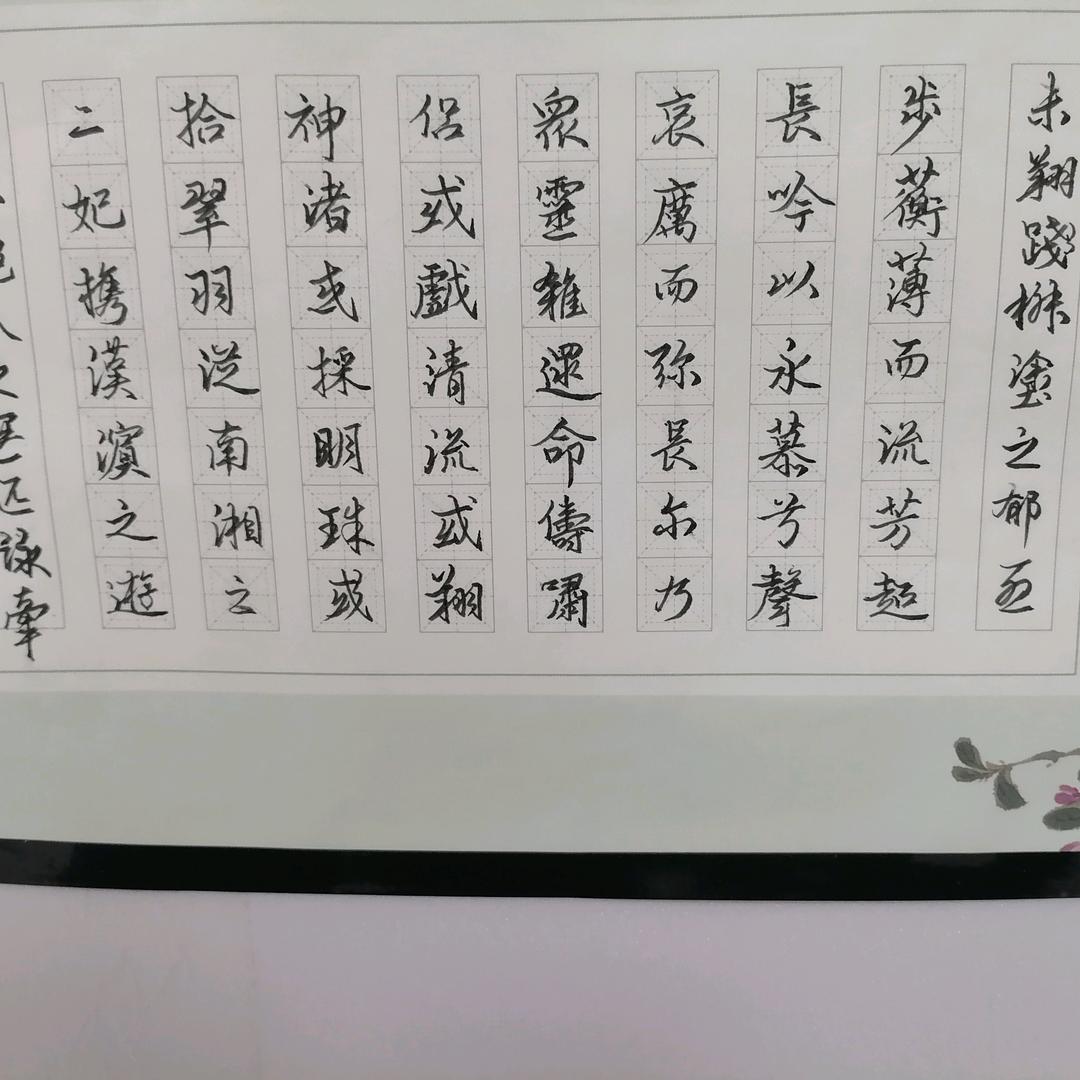 未翔踐椒塗之郁烈
步蘅薄而流芳超
長吟以永慕兮聲
哀厲而弥長尓乃
眾靈雜遝命儔嘯
侶或戲清流或翔
神渚或採明珠或
拾翠羽從南湘之
二妃携漢濱之遊
匹詠牽